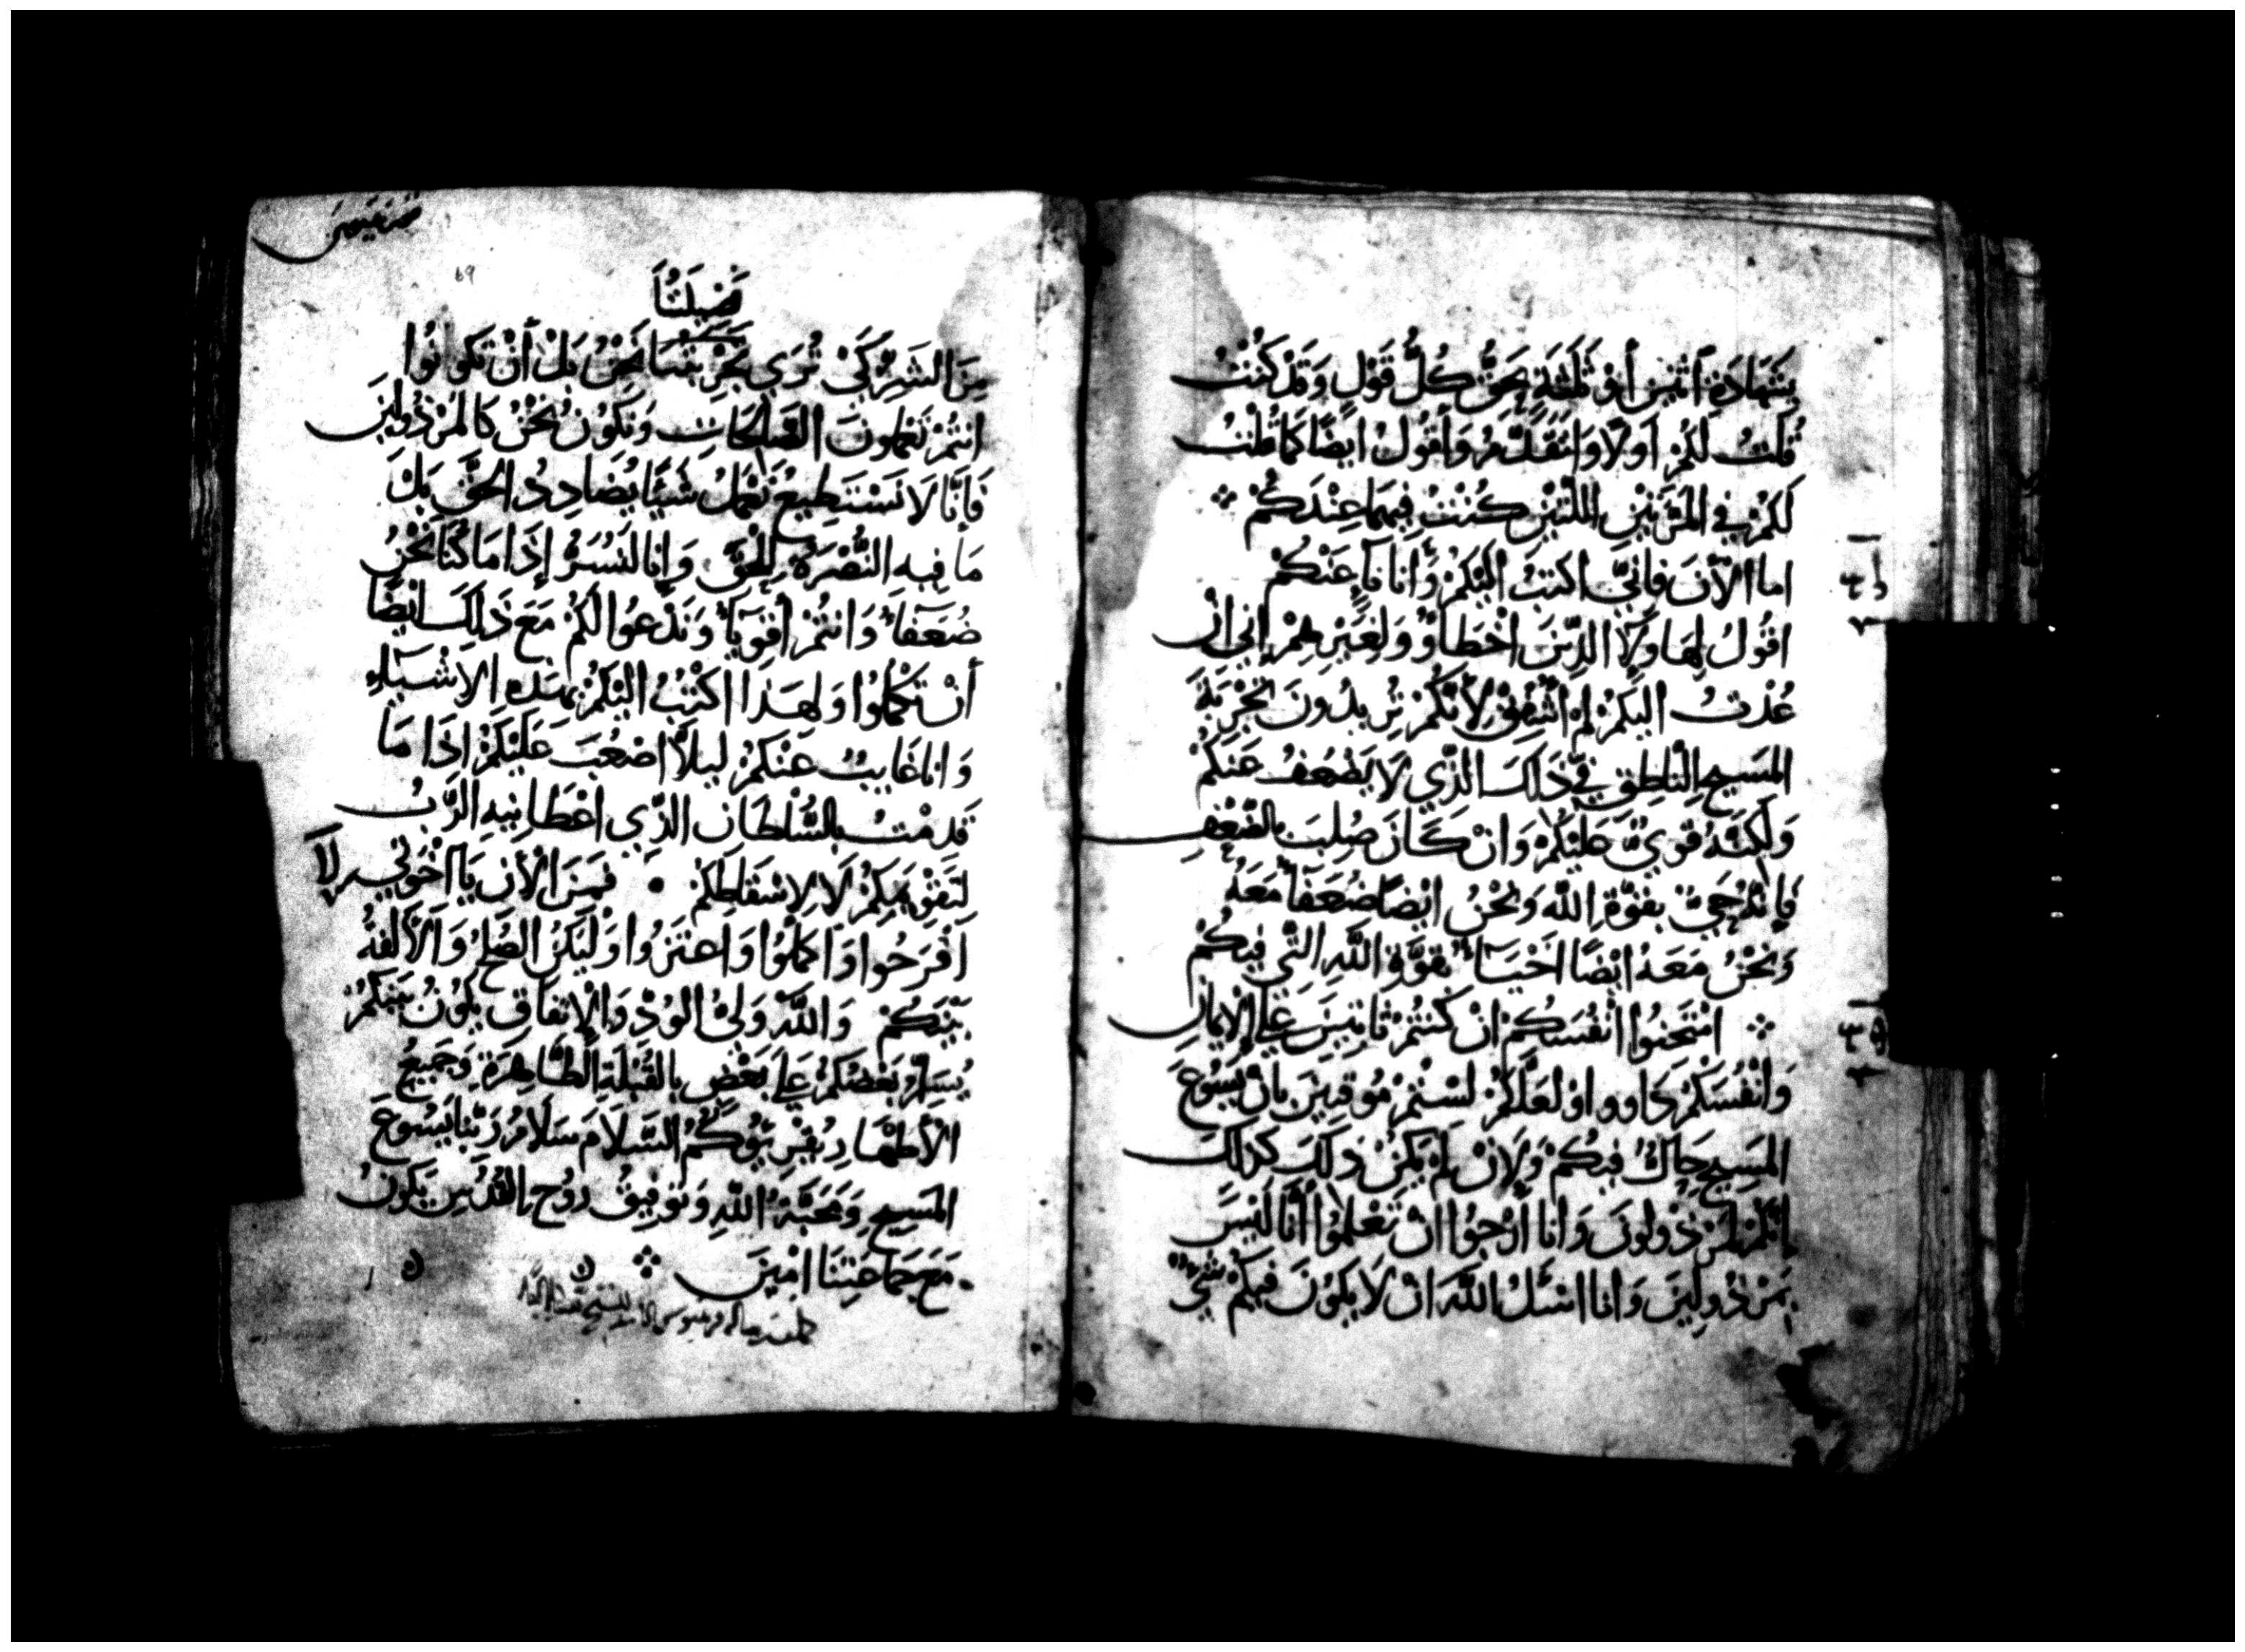 بِشَهَادَةِ أثنين أوْ ثَلَثَةٍ يَحِقُّ كُلُّ قَوْلٍ وَقَدْ كُنْتُ
قُلتُ لَكُمْ اولًا وَاتقَدَّمُ وَأَقُولُ ايضًا كَمَا قُلتُ
لَكُمْ في المَرَّتَيْنِ اللتَيْنِ كُنْتُ فِيهِمَا عِنْدَكُمْ
اما الآنَ فَانِيّ اكتبُ اليْكُمْ وَأنَا نَآءٍ عَنْكُمْ
اقُولُ لِهَاولَآ الذِينَ اخْطَاوْ وَلِغَيْرِهِمْ إني ان
عُدْتُ اليكُمْ لم اشْفِقْ لأنكُمْ تُرِيدُونَ تجْرِبَةَ
المَسِيحِ النَاطِقِ فيَّ ذَلِكَ الذي لَا يَضْعَفُ عَنكُمْ
وَلَكِنَّهُ قَوِيٌّ عَليْكُمْ وَانْ كَانَ صُلِبَ بالضّعْفِ
فَإنَّهُ حَيٌّ بِقُوَّةِ اللَّه وَنحْنُ ايْضًا ضُعَفَآءُ مَعَهُ
وَنحْنُ مَعَهُ ايْضًا احْيَآءٌ بِقُوَّةِ اللَّهِ التي فِيكُمْ
امْتَحِنُوا انْفُسَكُمْ انْ كُنتُمْ ثابِتِيْنَ عَلَى الإيمانِ
وَانْفُسَكُمْ دَاووا اوْ لعَلَّكُمْ لسْتُمْ مُوقِنِيَن بانْ يَسُوعَ
المَسِيح حَالٌّ فِيكُمْ وَلَإنْ لَمْ يَكُنْ ذلِكَ كَذلكَ
إنّكُمْ لمرْذُولُونَ وَانا ارْجُوا انْ تَعْلَمُوا أنَّا لَيْسَ
بمَرْذُولِينَ وَانا اسْئَلُ اللَّهَ انْ لَا يَكُونَ فِيكُمْ شيٌ
مِنَ الشَرِّ كَيْ تُرَى تَجْرِبَتُنَا نَحْنُ بَلْ أنْ تكونُوا
انتُمْ تَعْمَلونَ الصَّالحَاتِ وَنكُونُ نحْنُ كَالمرْذُولِينَ
فَانَّا لَا نَسْتَطِيعُ نَعْمَلُ شَيًّا يُضَادِدُ الحَقَّ بَلْ
مَا فيهِ النُّصْرَةُ لِلْحَقِّ وَإنا لَنُسَرُّ إذَا مَا كُنَّا نَحْنُ
ضُعَفَآءَ وَانتُمْ أقوِيَآءُ وَنَدْعُوا لَكُمْ مَعَ ذَلِكَ ايْضًا
أنْ تَكمْلُوا وَلِهَذَا اكتُبُ اليْكُمْ بِهَذِهِ الاشْيَآءِ
وَاناغَايِبٌ عَنكُمْ ليلَّا اصْعُبَ عَلَيْكُمْ اذَا مَا
قَدِمْتُ بِالسُّلْطَانِ الذِّي اعْطَانِيهِ الرَّبُّ
لِتَقْوِيمِكُمْ لَا لِاسْقَاطِكُمْ • فَمِنَ الآنِ يَا اخْوَتي
افْرَحُوا وَاكمْلُوا وَاعتَزُوا وَلْيَكُنِ الصُلحُ وَالأَلفةُ
بَيْنَكُمْ وَاللَّهُ وَليُّ الوُدِّ وَالإتفَاقِ يكُونُ مَعَكُمْ
يُسَلِّمُ بَعْضُكُمْ عَلَى بَعْضٍ بالقُبْلَةِ الطَّاهِرَةِ وَجَمِيعُ
الأَطهَارِ يُقْرِيُوكُمُ السَّلَامَ سَلَامُ رَبِّنَا يَسُوعَ
المَسِيحِ وَمَحَبَّةُ اللَّهِ وَتَوْفِيقُ رُوُحِ القُدُسِ يَكُونُ
مَعَ جمَاعَتِنَا امِينَ